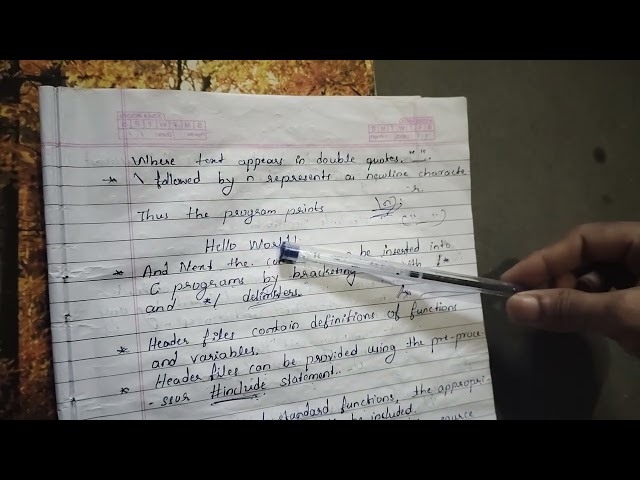 Where text appears in double quotes. "_".
* \ followed by n represents a newline characte
r.
Thus the program prints \n;
(" ")
Hello World!
* And Next the be inserted into
C programs by bracketing with /*
and */ delimiters.
* Header files contain definitions of functions
and variables.
* Header files can be provided using the pre-proce
- ssor #include statement.
standard functions, the appropri
be included.